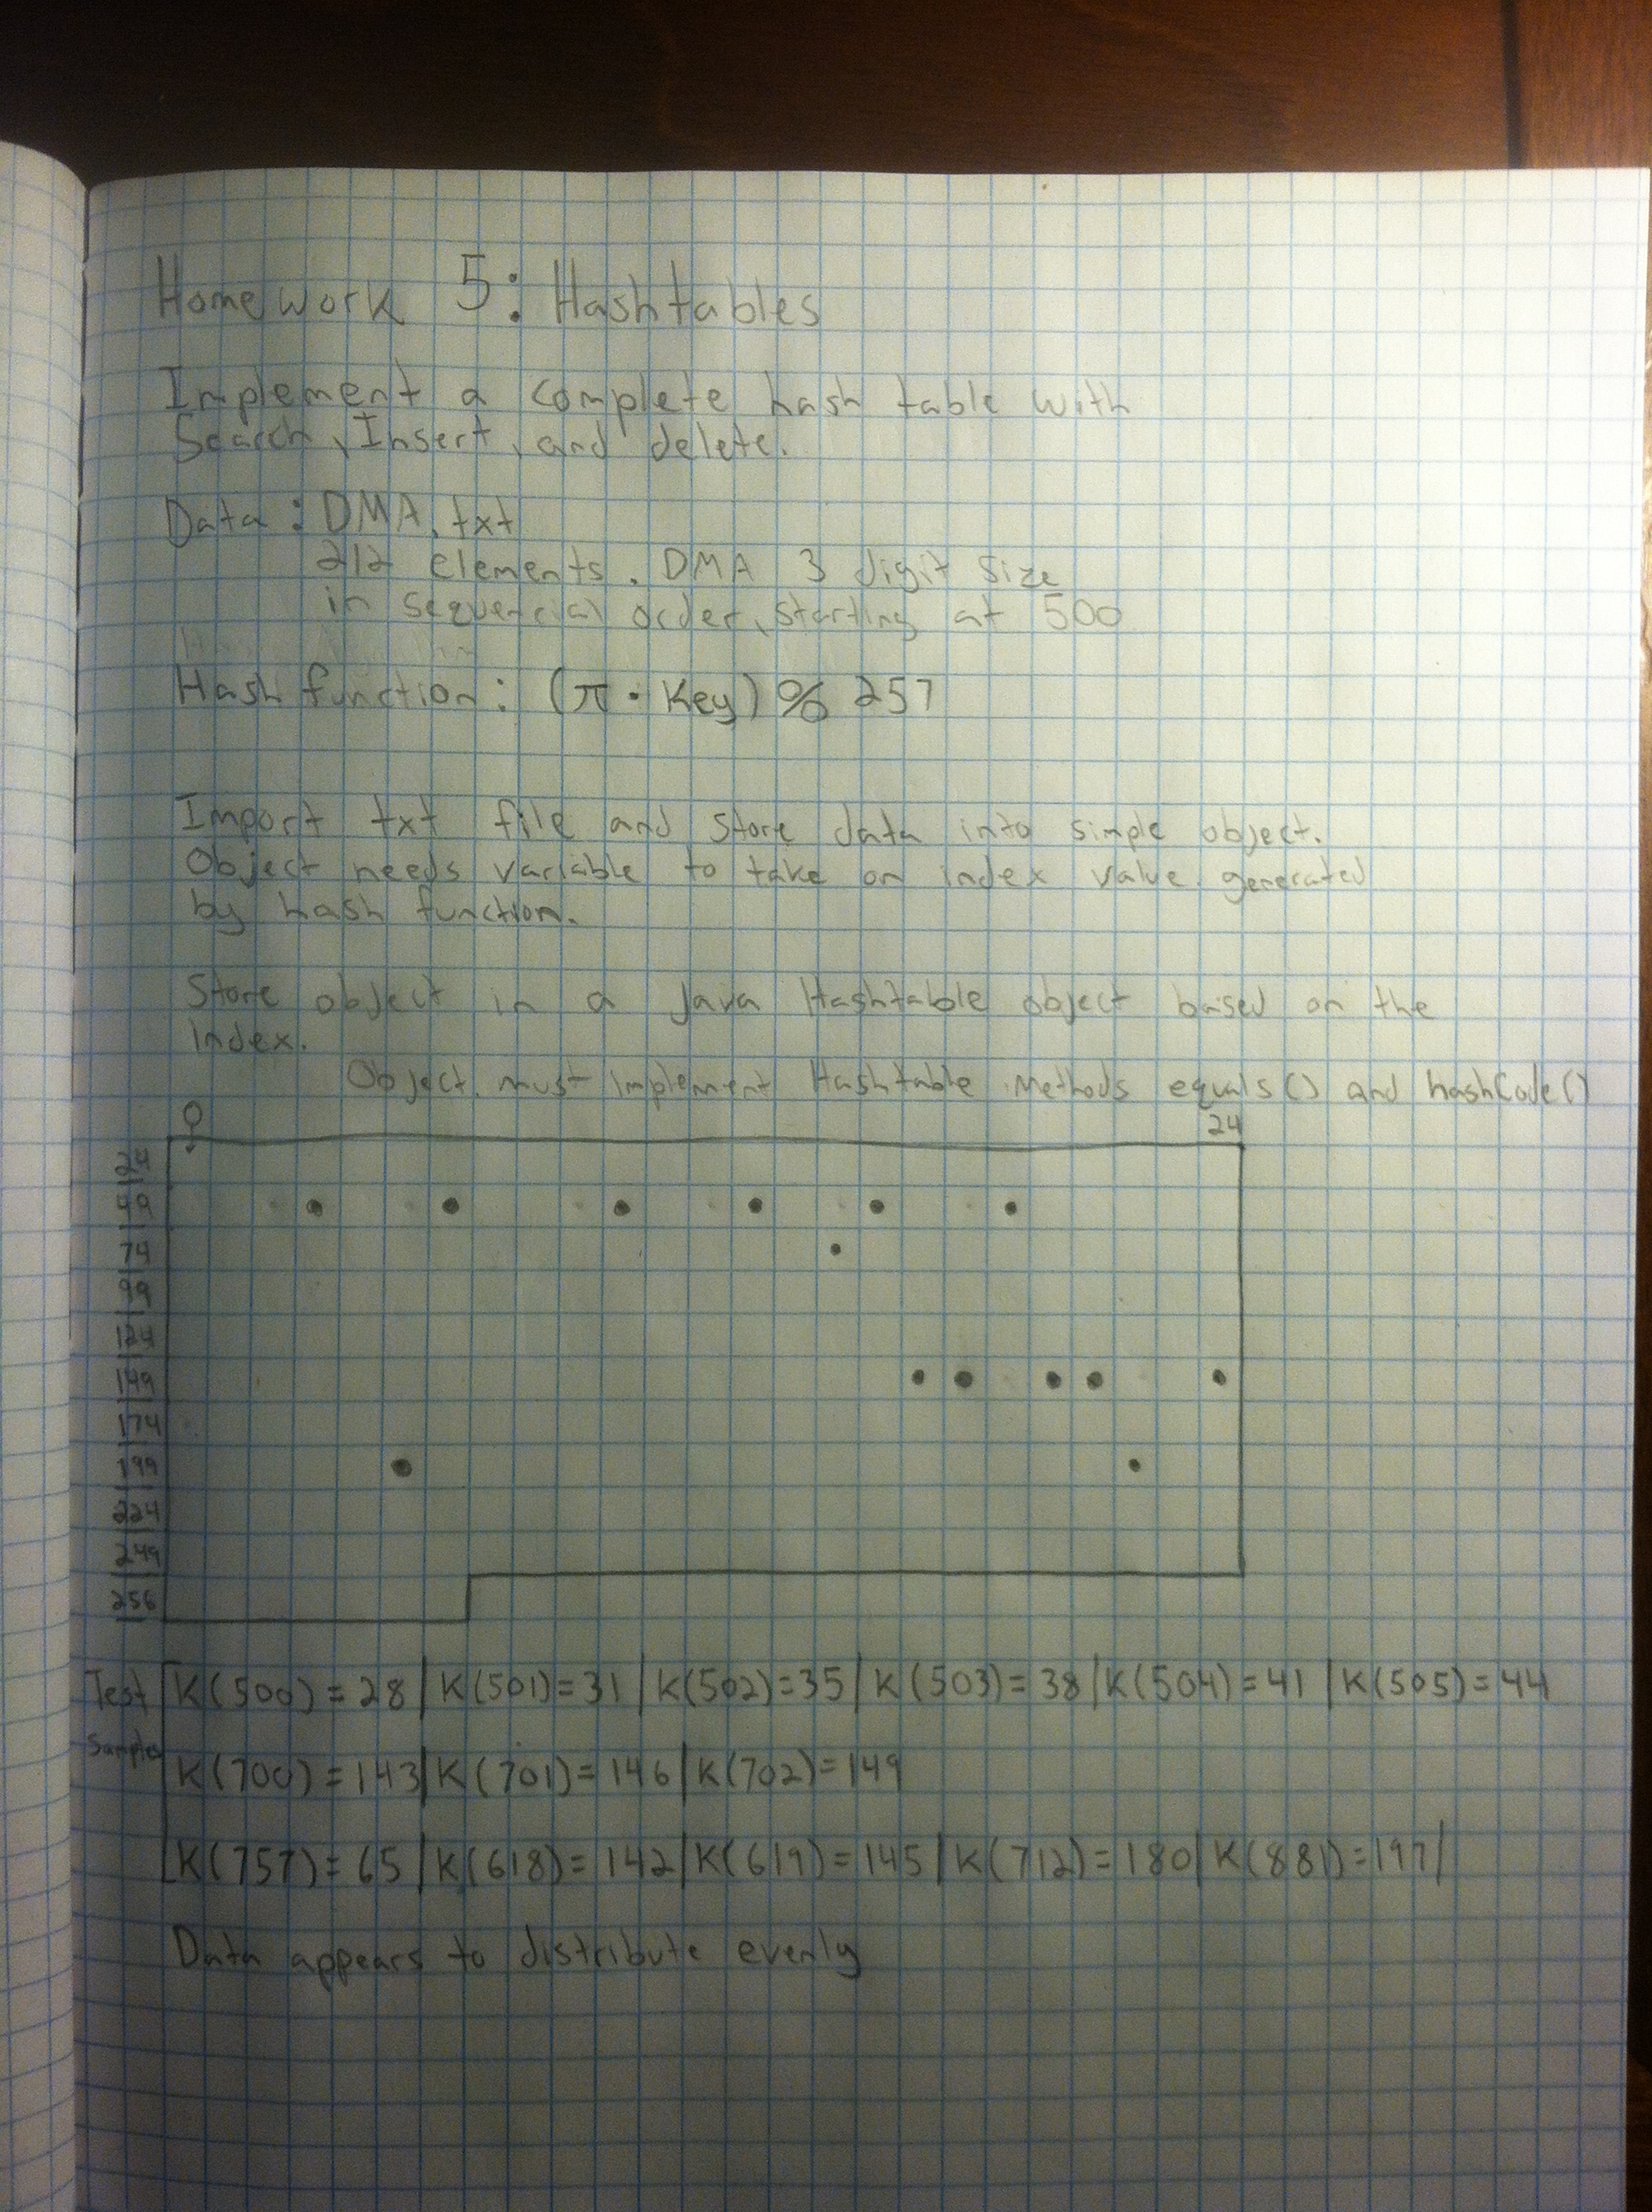 Homework 5: Hashtables
Implement a complete hash table with
Search, Insert, and delete.
Data: DMA.txt
212 elements. DMA 3 digit size
in sequencial order, starting at 500
Hash function: (π · Key) % 257
Import txt file and store data into simple object.
Object needs variable to take on index value generated
by hash function.
Store object in a Java Hashtable object based on the
Index.
Object must implement Hashtable Methods equals() and hashCode()
0 24
24
49
74
99
124
149
174
199
224
249
256
Test K(500) = 28 | K(501) = 31 | K(502) = 35 | K(503) = 38 | K(504) = 41 | K(505) = 44
Samples
K(700) = 143 | K(701) = 146 | K(702) = 149
K(757) = 65 | K(618) = 142 | K(619) = 145 | K(712) = 180 | K(881) = 197 |
Data appears to distribute evenly